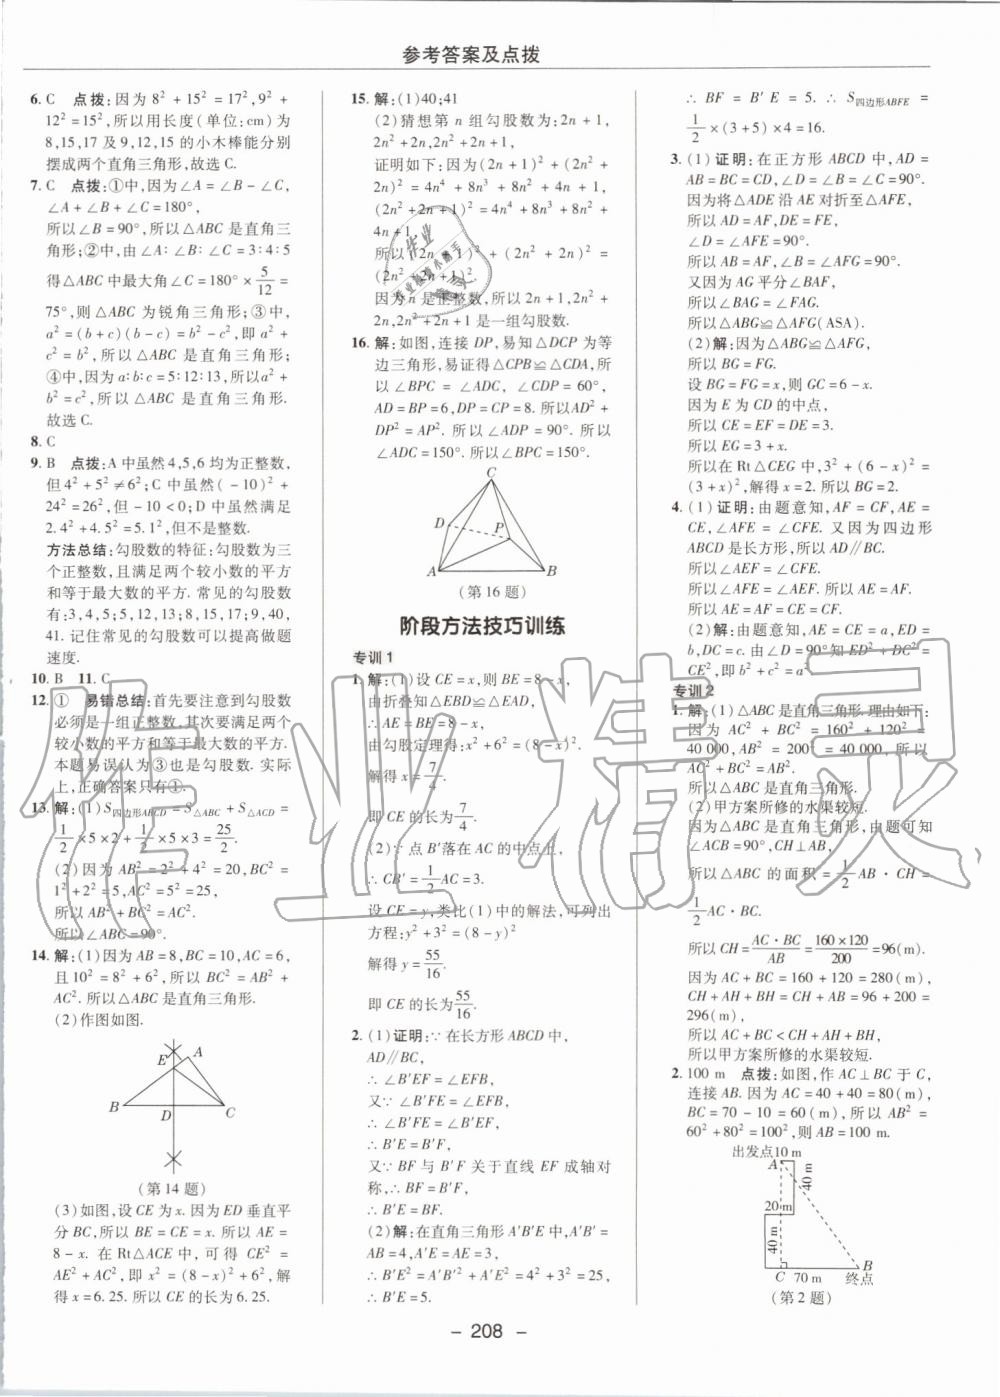 参考答案及点拨
6. C 点拨:因为8²+15²=17²,9²+
12²=15²,所以用长度(单位:cm)为
8,15,17及9,12,15的小木棒能分别
摆成两个直角三角形,故选C.
7. C 点拨:①中,因为∠A=∠B-∠C,
∠A+∠B+∠C=180°,
所以∠B=90°,所以△ABC是直角三
角形;②中,由∠A:∠B:∠C=3:4:5
得△ABC中最大角∠C=180°×5/12=
75°,则△ABC为锐角三角形;③中,
a²=(b+c)(b-c)=b²-c²,即a²+
c²=b²,所以△ABC是直角三角形;
④中,因为a:b:c=5:12:13,所以a²+
b²=c²,所以△ABC是直角三角形.
故选C.
8. C
9. B 点拨:A中虽然4,5,6均为正整数,
但4²+5²≠6²;C中虽然(-10)²+
24²=26²,但-10<0;D中虽然满足
2.4²+4.5²=5.1²,但不是整数.
方法总结:勾股数的特征:勾股数为三
个正整数,且满足两个较小数的平方
和等于最大数的平方.常见的勾股数
有:3,4,5;5,12,13;8,15,17;9,40,
41.记住常见的勾股数可以提高做题
速度.
10. B 11. C
12. ① 易错总结:首先要注意到勾股数
必须是一组正整数,其次要满足两个
较小数的平方和等于最大数的平方.
本题易误认为③也是勾股数.实际
上,正确答案只有①.
13. 解:(1)S四边形ABCD=S△ABC+S△ACD=
1/2×5×2+1/2×5×3=25/2.
(2)因为AB²=2²+4²=20,BC²=
1²+2²=5,AC²=5²=25,
所以AB²+BC²=AC².
所以∠ABC=90°.
14. 解:(1)因为AB=8,BC=10,AC=6,
且10²=8²+6²,所以BC²=AB²+
AC².所以△ABC是直角三角形.
(2)作图如图.
E A
B D C
(第14题)
(3)如图,设CE为x.因为ED垂直平
分BC,所以BE=CE=x.所以AE=
8-x.在Rt△ACE中,可得CE²=
AE²+AC²,即x²=(8-x)²+6²,解
得x=6.25.所以CE的长为6.25.
15. 解:(1)40;41
(2)猜想第n组勾股数为:2n+1,
2n²+2n,2n²+2n+1,
证明如下:因为(2n+1)²+(2n²+
2n)²=4n⁴+8n³+8n²+4n+1,
(2n²+2n+1)²=4n⁴+8n³+8n²+
4n+1,
所以(2n+1)²+(2n²+2n)²=
(2n²+2n+1)².
因为n是正整数,所以2n+1,2n²+
2n,2n²+2n+1是一组勾股数.
16. 解:如图,连接DP,易知△DCP为等
边三角形,易证得△CPB≌△CDA,所
以∠BPC=∠ADC,∠CDP=60°,
AD=BP=6,DP=CP=8.所以AD²+
DP²=AP².所以∠ADP=90°.所以
∠ADC=150°.所以∠BPC=150°.
C
D P
A B
(第16题)
阶段方法技巧训练
专训1
1. 解:(1)设CE=x,则BE=8-x,
由折叠知△EBD≌△EAD,
∴AE=BE=8-x,
由勾股定理得:x²+6²=(8-x)².
解得x=7/4.
即CE的长为7/4.
(2)∵点B′落在AC的中点上,
∴CB′=1/2AC=3.
设CE=y,类比(1)中的解法,可列出
方程:y²+3²=(8-y)²
解得y=55/16.
即CE的长为55/16.
2. (1)证明:∵在长方形ABCD中,
AD∥BC,
∴∠B′EF=∠EFB,
又∵∠B′FE=∠EFB,
∴∠B′FE=∠B′EF,
∴B′E=B′F,
又∵BF与B′F关于直线EF成轴对
称,∴BF=B′F,
∴B′E=BF.
(2)解:在直角三角形A′B′E中,A′B′=
AB=4,A′E=AE=3,
∴B′E²=A′B′²+A′E²=4²+3²=25,
∴B′E=5.
∴BF=B′E=5.∴S四边形ABFE=
1/2×(3+5)×4=16.
3. (1)证明:在正方形ABCD中,AD=
AB=BC=CD,∠D=∠B=∠C=90°.
因为将△ADE沿AE对折至△AFE,
所以AD=AF,DE=FE,
∠D=∠AFE=90°.
所以AB=AF,∠B=∠AFG=90°.
又因为AG平分∠BAF,
所以∠BAG=∠FAG.
所以△ABG≌△AFG(ASA).
(2)解:因为△ABG≌△AFG,
所以BG=FG.
设BG=FG=x,则GC=6-x.
因为E为CD的中点,
所以CE=EF=DE=3.
所以EG=3+x.
所以在Rt△CEG中,3²+(6-x)²=
(3+x)²,解得x=2.所以BG=2.
4. (1)证明:由题意知,AF=CF,AE=
CE,∠AFE=∠CFE.又因为四边形
ABCD是长方形,所以AD∥BC.
所以∠AEF=∠CFE.
所以∠AFE=∠AEF.所以AE=AF.
所以AE=AF=CE=CF.
(2)解:由题意知,AE=CE=a,ED=
b,DC=c.由∠D=90°知ED²+DC²=
CE²,即b²+c²=a².
专训2
1. 解:(1)△ABC是直角三角形.理由如下:
因为AC²+BC²=160²+120²=
40 000,AB²=200²=40 000,所以
AC²+BC²=AB².
所以△ABC是直角三角形.
(2)甲方案所修的水渠较短.
因为△ABC是直角三角形,由题可知
∠ACB=90°,CH⊥AB,
所以△ABC的面积=1/2AB·CH=
1/2AC·BC.
所以CH=AC·BC/AB=160×120/200=96(m).
因为AC+BC=160+120=280(m),
CH+AH+BH=CH+AB=96+200=
296(m),
所以AC+BC<CH+AH+BH,
所以甲方案所修的水渠较短.
2. 100 m 点拨:如图,作AC⊥BC于C,
连接AB.因为AC=40+40=80(m),
BC=70-10=60(m),所以AB²=
60²+80²=100²,则AB=100 m.
出发点10 m
A
40 m
20 m
40 m
B
C 70 m 终点
(第2题)
- 208 -
作业精灵